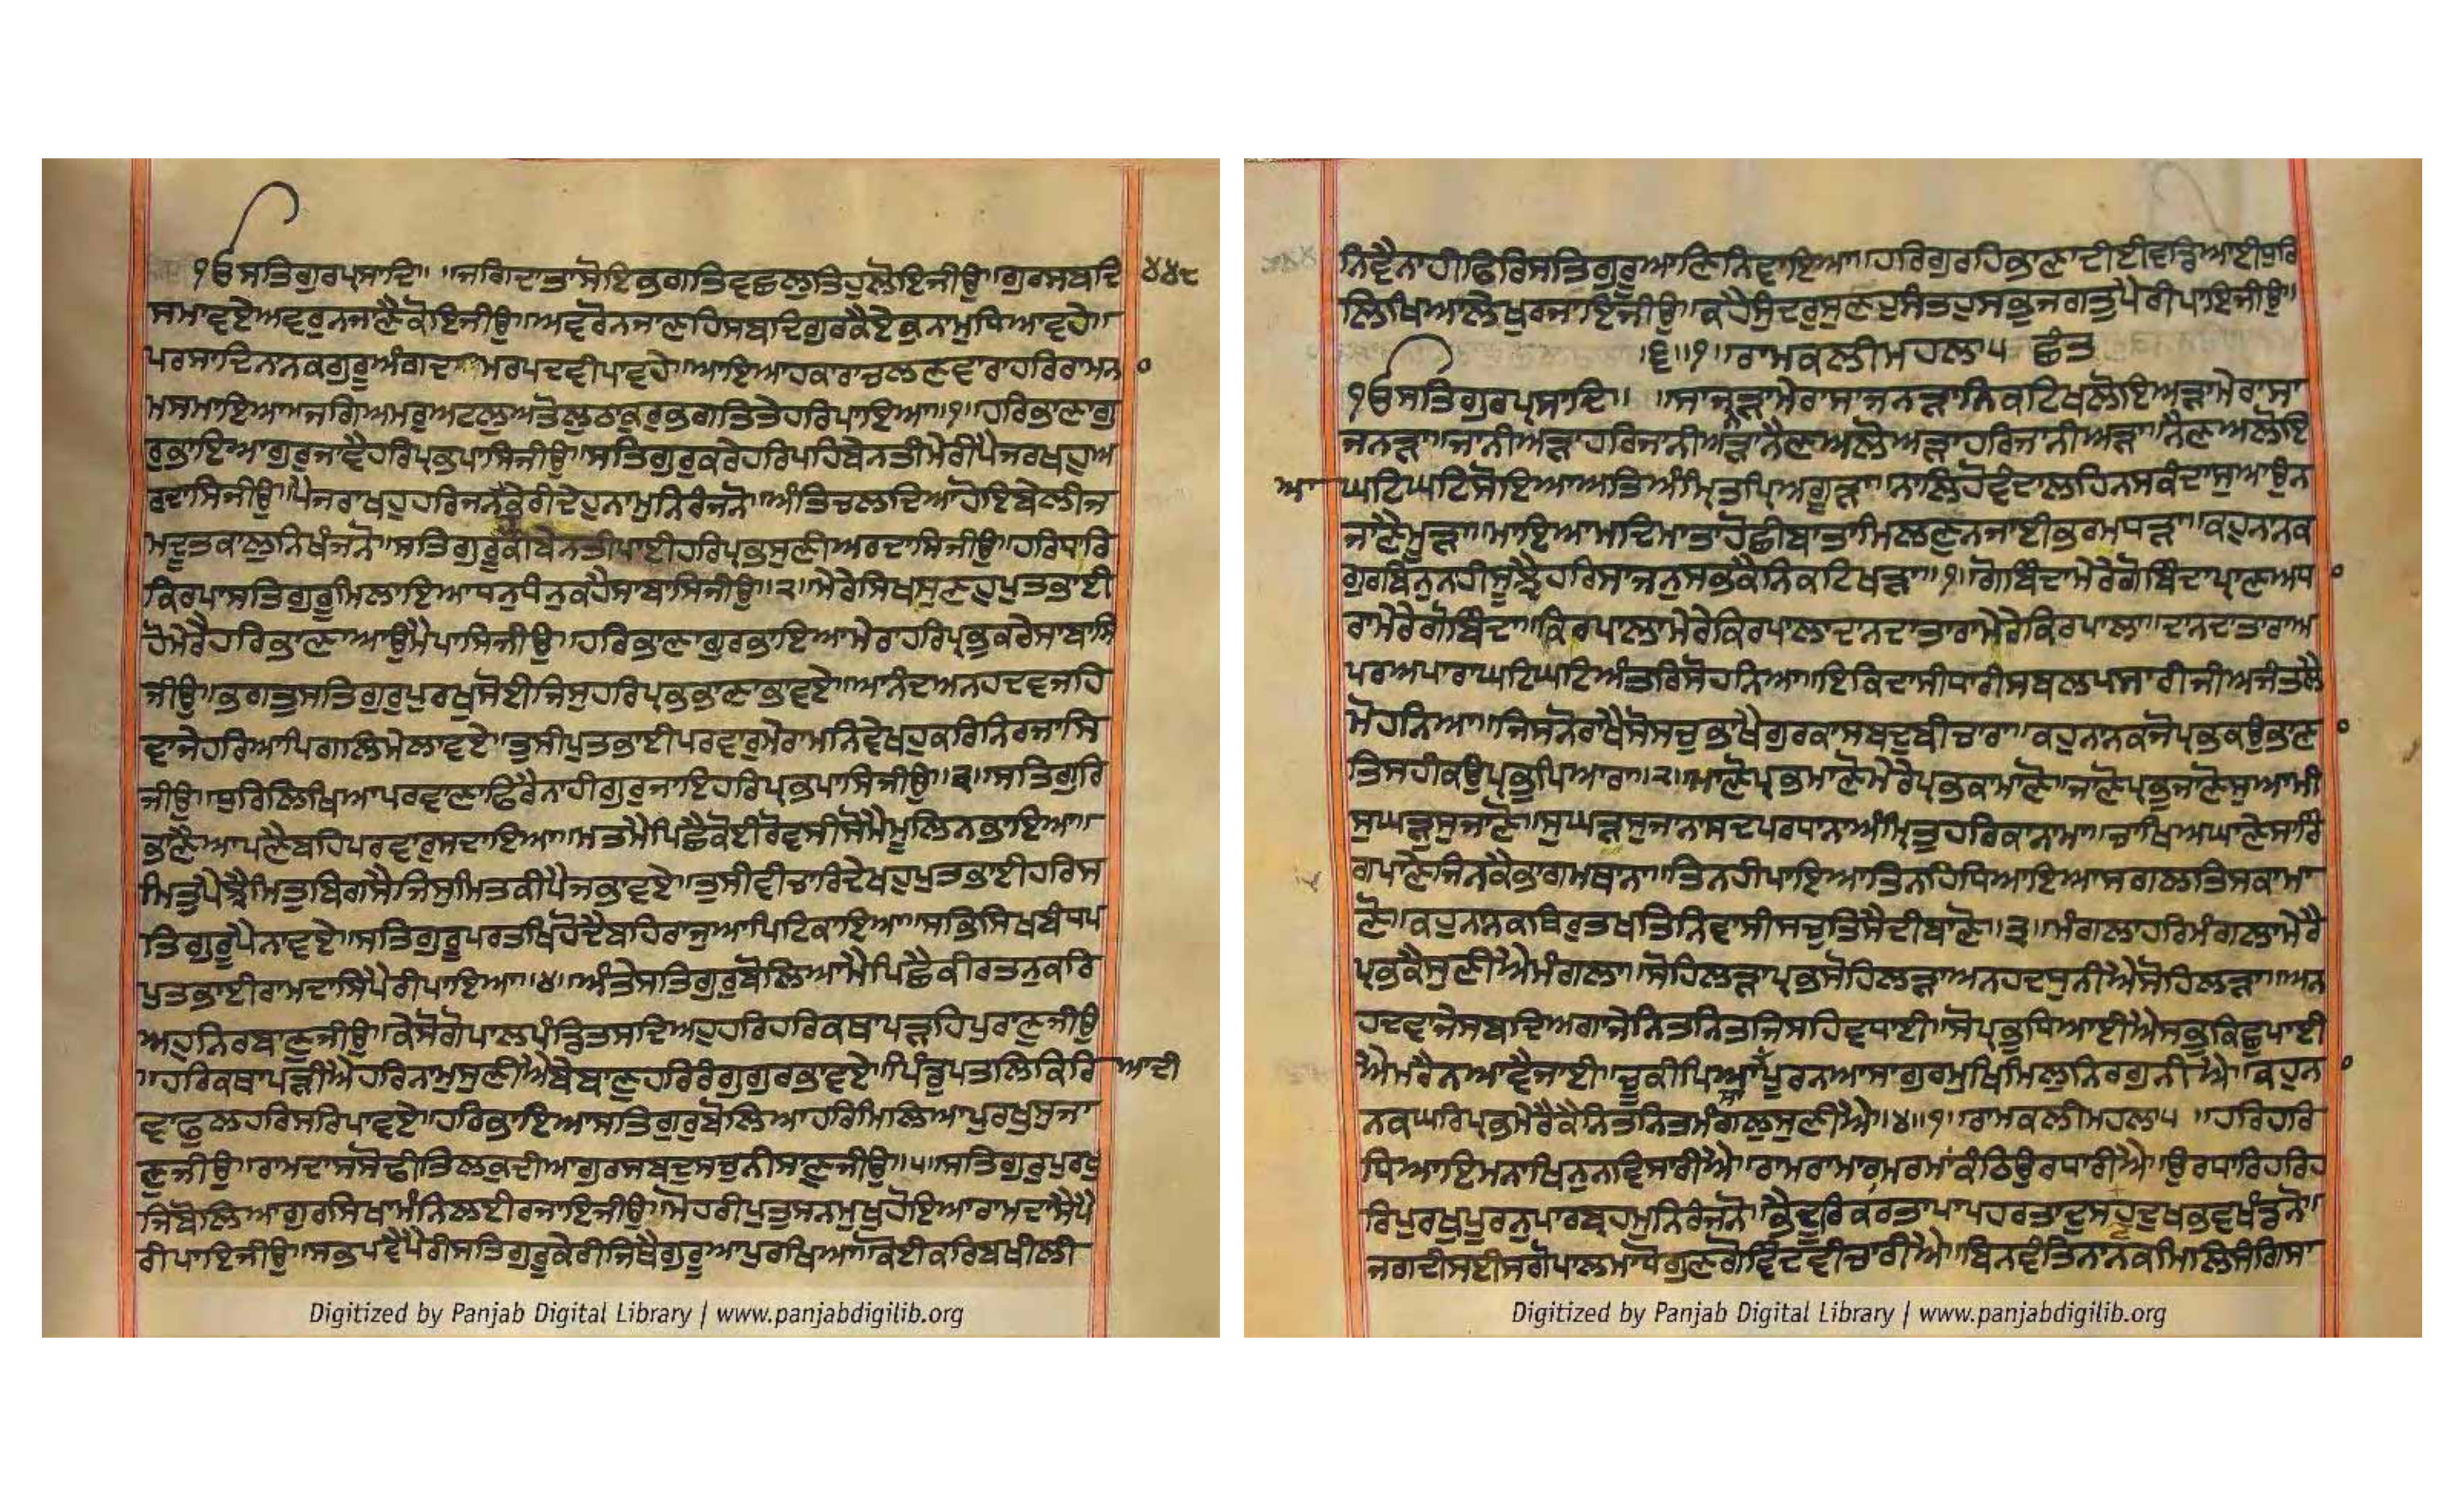 ੧ੳਸਤਿਗੁਰਪ੍ਰਸਾਦਿ॥ ॥ਜਗਿਦਾਤਾਸੋਇਭਗਤਿਵਛਲੁਤਿਹੁਲੋਇਜੀਉ॥ਗੁਰਸਬਦਿ ੪੪੯
ਸਮਾਵਏਅਵਰੁਨਜਾਣੈਕੋਇਜੀਉ॥ਅਵਰੋਨਜਾਣਹਿਸਬਦਿਗੁਰਕੈਏਕੁਨਾਮੁਧਿਆਵਹੇ॥
ਪਰਸਾਦਿਨਾਨਕਗੁਰੂਅੰਗਦਾਮਰਪਦਵੀਪਾਵਹੇ॥ਆਇਆਹਕਾਰਾਚਲਣਵਾਰਾਹਰਿਰਾਮਨਾ
ਮਸਮਾਇਆ॥ਜਗਿਅਮਰੁਅਟਲੁਅਤੋਲੁਠਾਕਰੁਭਗਤਿਤੇਹਰਿਪਾਇਆ॥੧॥ਹਰਿਭਾਣਾਗੁ
ਰਭਾਇਆਗੁਰੁਜਾਵੈਹਰਿਪ੍ਰਭਪਾਸਿਜੀਉ॥ਸਤਿਗੁਰੁਕਰੇਹਰਿਪਹਿਬੇਨਤੀਮੇਰੀਪੈਜਰਖਹੁਅ
ਰਦਾਸਿਜੀਉ॥ਪੈਜਰਾਖਹੁਹਰਿਜਨਕੇਰੀਦੇਹੁਨਾਮੁਨਿਰੰਜਨੋ॥ਅੰਤਿਚਲਦਿਆਹੋਇਬੇਲੀਜ
ਮਦੂਤਕਾਲੁਨਿਖੰਜਨੋ॥ਸਤਿਗੁਰੂਕੀਬੇਨਤੀਪਾਈਹਰਿਪ੍ਰਭਸੁਣੀਅਰਦਾਸਿਜੀਉ॥ਹਰਿਧਾਰਿ
ਕਿਰਪਾਸਤਿਗੁਰੂਮਿਲਾਇਆਧਨੁਧੰਨੁਕਹੈਸਾਬਾਸਿਜੀਉ॥੨॥ਮੇਰੇਸਿਖਸੁਣਹੁਪੁਤਭਾਈ
ਹੋਮੇਰੈਹਰਿਭਾਣਾਆਉਮੈਪਾਸਿਜੀਉ॥ਹਰਿਭਾਣਾਗੁਰਭਾਇਆਮੇਰਾਹਰਿਪ੍ਰਭਕਰੇਸਾਬਾਸਿ
ਜੀਉ॥ਭਗਤੁਸਤਿਗੁਰੁਪੁਰਖੁਸੋਈਜਿਸੁਹਰਿਪ੍ਰਭਭਾਣਾਭਾਵਏ॥ਆਨੰਦਅਨਹਦਵਜਹਿ
ਵਾਜੇਹਰਿਆਪਿਗਲਿਮੇਲਾਵਏ॥ਤੁਸੀਪੁਤਭਾਈਪਰਵਾਰੁਮੇਰਾਮਨਿਵੇਖਹੁਕਰਿਨਿਰਜਾਸਿ
ਜੀਉ॥ਧੁਰਿਲਿਖਿਆਪਰਵਾਣਾਫਿਰੈਨਾਹੀਗੁਰੁਜਾਇਹਰਿਪ੍ਰਭਪਾਸਿਜੀਉ॥੩॥ਸਤਿਗੁਰਿ
ਭਾਣੈਆਪਣੈਬਹਿਪਰਵਾਰੁਸਦਾਇਆ॥ਮਤਮੈਪਿਛੈਕੋਈਰੋਵਸੀਸੋਮੈਮੂਲਿਨਭਾਇਆ॥
ਮਿਤੁਪੈਝੈਮਿਤੁਬਿਗਸੈਜਿਸੁਮਿਤਕੀਪੈਜਭਾਵਏ॥ਤੁਸੀਵੀਚਾਰਿਦੇਖਹੁਪੁਤਭਾਈਹਰਿਸ
ਤਿਗੁਰੂਪੈਨਾਵਏ॥ਸਤਿਗੁਰੂਪਰਤਖਿਹੋਦੈਬਹਿਰਾਜੁਆਪਿਟਿਕਾਇਆ॥ਸਭਿਸਿਖਬੰਧਪ
ਪੁਤਭਾਈਰਾਮਦਾਸਪੈਰੀਪਾਇਆ॥੪॥ਅੰਤੇਸਤਿਗੁਰੁਬੋਲਿਆਮੈਪਿਛੈਕੀਰਤਨੁਕਰਿ
ਅਹੁਨਿਰਬਾਣੁਜੀਉ॥ਕੇਸੋਗੋਪਾਲਪੰਡਿਤਸਦਿਅਹੁਹਰਿਹਰਿਕਥਾਪੜਹਿਪੁਰਾਣੁਜੀਉ
॥ਹਰਿਕਥਾਪੜੀਐਹਰਿਨਾਮੁਸੁਣੀਐਬੇਬਾਣੁਹਰਿਰੰਗੁਗੁਰਭਾਵਏ॥ਪਿੰਡੁਪਤਲਿਕਿਰਿ ਆਦੀ
ਵਾਫੁਲਹਰਿਸਰਿਪਾਵਏ॥ਹਰਿਭਾਇਆਸਤਿਗੁਰੁਬੋਲਿਆਹਰਿਮਿਲਿਆਪੁਰਖੁਸੁਜਾ
ਣੁਜੀਉ॥ਰਾਮਦਾਸਸੋਢੀਤਿਲਕੁਦੀਆਗੁਰਸਬਦੁਸਚੁਨੀਸਾਣੁਜੀਉ॥੫॥ਸਤਿਗੁਰੁਪੁਰਖੁ
ਜਿਬੋਲਿਆਗੁਰਸਿਖਾਮੰਨਿਲਈਰਜਾਇਜੀਉ॥ਮੋਹਰੀਪੁਤੁਸਨਮੁਖੁਹੋਇਆਰਾਮਦਾਸੈਪੈ
ਰੀਪਾਇਜੀਉ॥ਸਭਪਵੈਪੈਰੀਸਤਿਗੁਰੂਕੇਰੀਜਿਥੈਗੁਰੂਆਪੁਰਖਿਆ॥ਕੋਈਕਰਿਬਖੀਲੀ
ਨਿਵੈਨਾਹੀਫਿਰਿਸਤਿਗੁਰੂਆਣਿਨਿਵਾਇਆ॥ਹਰਿਗੁਰਹਿਭਾਣਾਦੀਈਵਡਿਆਈਧੁਰਿ
ਲਿਖਿਆਲੇਖੁਰਜਾਇਜੀਉ॥ਕਹੈਸੁੰਦਰੁਸੁਣਹੁਸੰਤਹੁਸਭੁਜਗਤੁਪੈਰੀਪਾਇਜੀਉ॥
॥੬॥੧॥ਰਾਮਕਲੀਮਹਲਾ੫ ਛੰਤ
੧ੳਸਤਿਗੁਰਪ੍ਰਸਾਦਿ॥ ॥ਸਾਜਨੜਾਮੇਰਾਸਾਜਨੜਾਨਿਕਟਿਖਲੋਇਅੜਾਮੇਰਾਸਾ
ਜਨੜਾ॥ਜਾਨੀਅੜਾਹਰਿਜਾਨੀਅੜਾਨੈਣਅਲੋਅੜਾਹਰਿਜਾਨੀਅੜਾ॥ਨੈਣਅਲੋਇ
ਆ ਘਟਿਘਟਿਸੋਇਆਅਤਿਅੰਮ੍ਰਿਤਪ੍ਰਿਅਗੂੜਾ॥ਨਾਲਿਹੋਵੰਦਾਲਹਿਨਸਕੰਦਾਸੁਆਉਨ
ਜਾਣੈਮੂੜਾ॥ਮਾਇਆਮਦਿਮਾਤਾਹੋਛੀਬਾਤਾਮਿਲਣੁਨਜਾਈਭਰਮਧੜਾ॥ਕਹੁਨਾਨਕ
ਗੁਰਬਿਨੁਨਾਹੀਸੂਝੈਹਰਿਸਾਜਨੁਸਭਕੈਨਿਕਟਿਖੜਾ॥੧॥ਗੋਬਿੰਦਾਮੇਰੇਗੋਬਿੰਦਾਪ੍ਰਾਣਅਧਾ
ਰਾਮੇਰੇਗੋਬਿੰਦਾ॥ਕਿਰਪਾਲਾਮੇਰੇਕਿਰਪਾਲਾਦਾਨਦਾਤਾਰਾਮੇਰੇਕਿਰਪਾਲਾ॥ਦਾਨਦਾਤਾਰਾਅ
ਪਰਅਪਾਰਾਘਟਿਘਟਿਅੰਤਰਿਸੋਹਨਿਆ॥ਇਕਿਦਾਸੀਧਾਰੀਸਬਲਪਸਾਰੀਜੀਅਜੰਤਲੈ
ਮੋਹਨਿਆ॥ਜਿਸਨੋਰਾਖੈਸੋਸਚੁਭਾਖੈਗੁਰਕਾਸਬਦੁਬੀਚਾਰਾ॥ਕਹੁਨਾਨਕਜੋਪ੍ਰਭਕਉਭਾਣਾ
ਤਿਸਹੀਕਉਪ੍ਰਭੁਪਿਆਰਾ॥੨॥ਮਾਣੋਪ੍ਰਭਮਾਣੋਮੇਰੇਪ੍ਰਭਕਾਮਾਣੋ॥ਜਾਣੋਪ੍ਰਭੁਜਾਣੋਸੁਆਮੀ
ਸੁਘੜੁਸੁਜਾਣੋ॥ਸੁਘੜਸੁਜਾਨਾਸਦਪਰਧਾਨਾਅੰਮ੍ਰਿਤੁਹਰਿਕਾਨਾਮਾ॥ਚਾਖਿਅਘਾਣੇਸਾਰਿ
ਗਪਾਣੇਜਿਨਕੈਭਾਗਮਥਾਨਾ॥ਤਿਨਹੀਪਾਇਆਤਿਨਹਿਧਿਆਇਆਸਗਲਤਿਸਕਾਮਾ
ਣੋ॥ਕਹੁਨਾਨਕਥਿਰੁਤਖਤਿਨਿਵਾਸੀਸਚੁਤਿਸੈਦੀਬਾਣੋ॥੩॥ਮੰਗਲਾਹਰਿਮੰਗਲਾਮੇਰੇ
ਪ੍ਰਭਕੈਸੁਣੀਐਮੰਗਲਾ॥ਸੋਹਿਲੜਾਪ੍ਰਭਸੋਹਿਲੜਾਅਨਹਦਧੁਨੀਐਸੋਹਿਲੜਾ॥ਅਨ
ਹਦਵਾਜੇਸਬਦਿਅਗਾਜੇਨਿਤਨਿਤਜਿਸਹਿਵਧਾਈ॥ਸੋਪ੍ਰਭੁਧਿਆਈਐਸਭੁਕਿਛੁਪਾਈ
ਐਮਰੈਨਆਵੈਜਾਈ॥ਚੂਕੀਪਿਆਸਾਪੂਰਨਆਸਾਗੁਰਮੁਖਿਮਿਲੁਨਿਰਗੁਨੀਐ॥ਕਹੁਨਾ
ਨਕਘਰਿਪ੍ਰਭਮੇਰੇਕੈਨਿਤਨਿਤਮੰਗਲੁਸੁਣੀਐ॥੪॥੧॥ਰਾਮਕਲੀਮਹਲਾ੫ ॥ਹਰਿਹਰਿ
ਧਿਆਇਮਨਾਖਿਨੁਨਵਿਸਾਰੀਐ॥ਰਾਮਰਾਮਾਰਾਮਰਮਾਕੰਠਿਉਰਧਾਰੀਐ॥ਉਰਧਾਰਿਹਰਿਹ
ਰਿਪੁਰਖੁਪੂਰਨੁਪਾਰਬ੍ਰਹਮੁਨਿਰੰਜਨੋ॥ਭੈਦੂਰਿਕਰਤਾਪਾਪਹਰਤਾਦੁਸਹਦੁਖਭਵਖੰਡਨੋ॥
ਜਗਦੀਸਈਸਗੋਪਾਲਮਾਧੋਗੁਣਗੋਵਿੰਦਵੀਚਾਰੀਐ॥ਬਿਨਵੰਤਿਨਾਨਕਮਿਲਿਸੰਗਿਸਾ
Digitized by Panjab Digital Library | www.panjabdigilib.org
Digitized by Panjab Digital Library | www.panjabdigilib.org